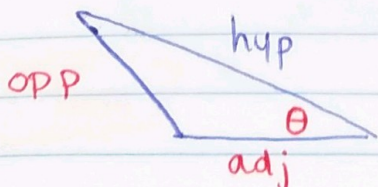 hyp
opp
θ
adj